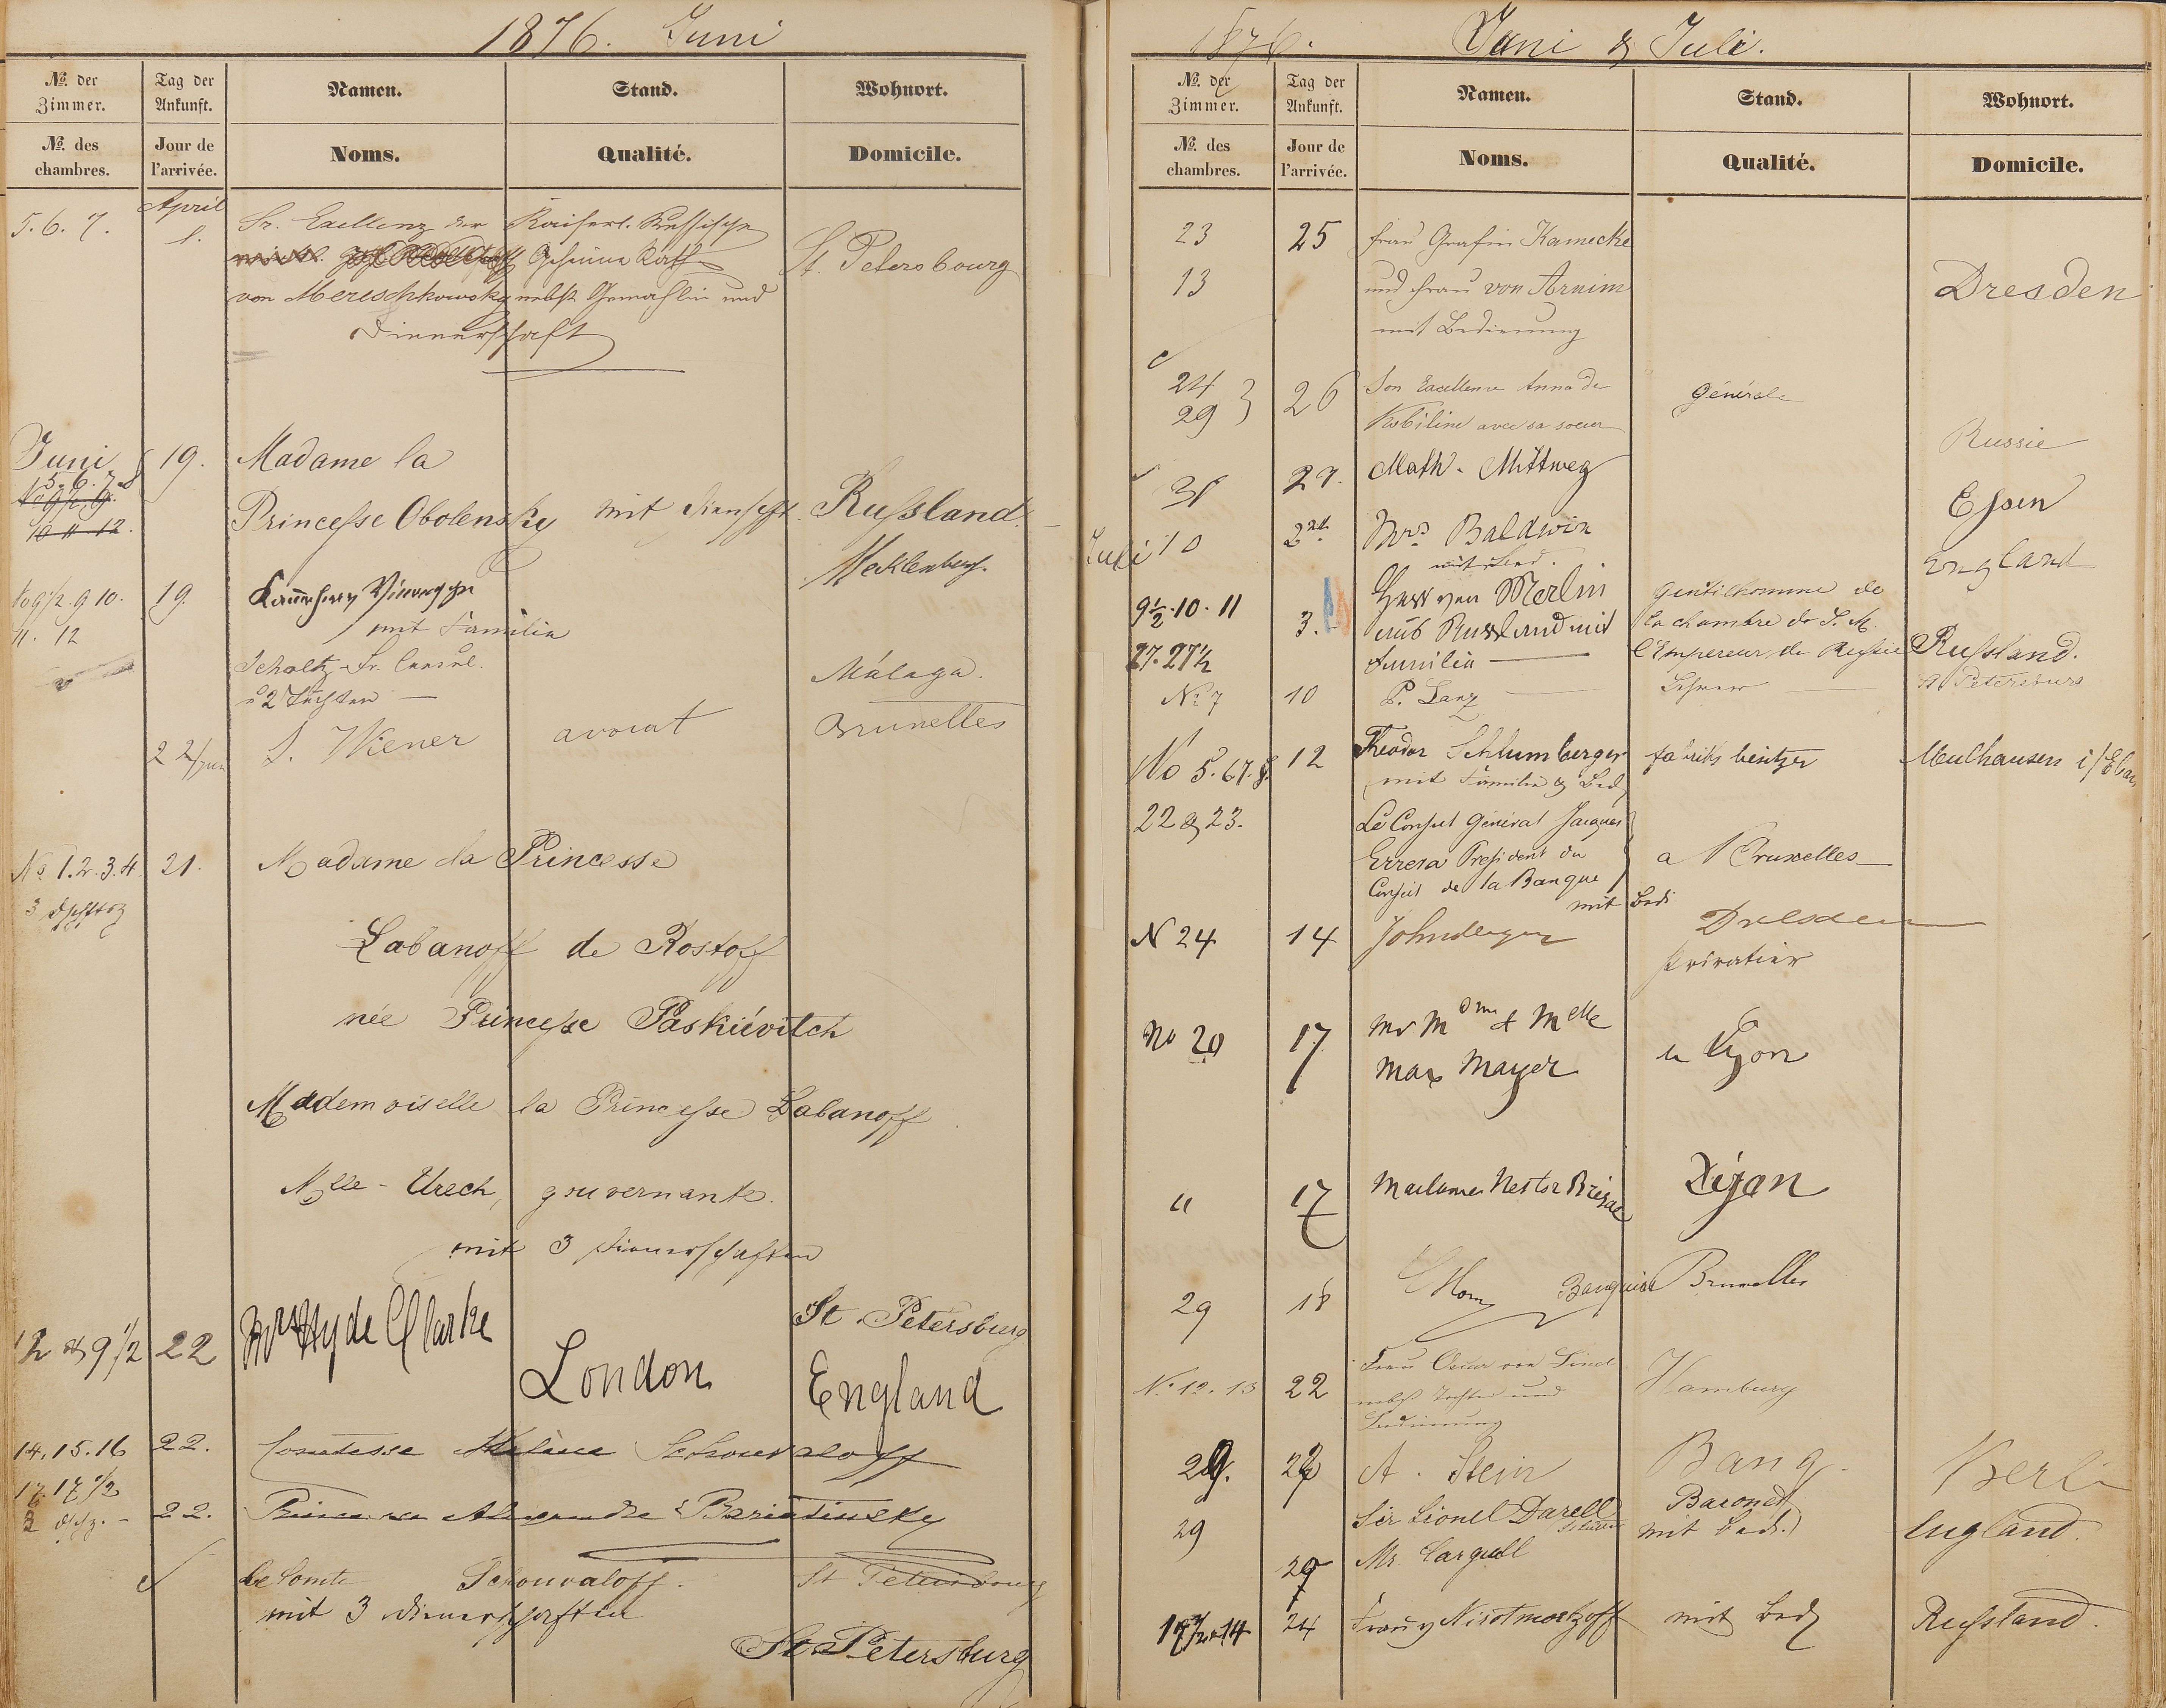 1876. Juni
No. der Zimmer.
Tag der Ankunft.
Namen.
Stand.
Wohnort.
No. des chambres.
Jour de l'arrivée.
Noms.
Qualité.
Domicile.
April
5. 6. 7. 1. Sr. Excellenz der Kaiserl. Russische
Geheime Rath St. Petersbourg
von Mereschkowsky nebst Gemahlin und
Dienerschaft
Juni 19. Madame la
5. 6. 7. 8
Princesse Obolensky mit Dienersch. Russland.
10 11. 12.
Mecklenburg.
No 9½. 9 10. 19. Kammerherr
11. 12 mit Familie
Scholtz Sr. Consul. Málaga.
2 Töchter
22/Juni S. Wiener avocat Bruxelles
No 1. 2. 3. 4. 21. Madame la Princesse
3
Labanoff de Rostoff
née Princesse Paskiévitch
Mademoiselle la Princesse Labanoff
Mlle - Urech, gouvernante.
mit 3 Dienerschaften
St. Petersburg
12 & 9½ 22 Mrs Hyde Clarke
London England
14. 15. 16 22. Comtesse Hélène Schouvaloff
17. 17½
22. Princesse Alexandre Bariatinsky
Le Comte Schouvaloff. St Petersbourg
mit 3 Dienerschaften
St. Petersburg
1876. Juni & Juli.
No. der Zimmer.
Tag der Ankunft.
Namen.
Stand.
Wohnort.
No. des chambres.
Jour de l'arrivée.
Noms.
Qualité.
Domicile.
23 25 Frau Grafin Kamecke
13 und Frau von Arnim Dresden
mit Bedienung
24 29 26 Son Excellence Anna de Générale
Kobiline avec sa soeur Russie
31 27. Math. Mittweg Essen
Juli 10 2nd Mrs Baldwin England
mit Bed.
9½. 10. 11 3. Herr von Merlin gentilhomme de
aus Russland mit la chambre de S. M.
27. 27½ Familie l'Empereur de Russie Russland.
No 7 10 P. Lanz Lehrer St Petersburg
No 5. 6 7. 8. 12 Theodor Schlumberger fabriksbesitzer Mulhausen i/Elsas
mit Familie & Bed
22 & 23. Le Consul Général Jacques
Errera President du a Bruxelles
Conseil de la Banque
mit Bed
N 24 14 Dresden
Privatier
No 20 17 Mr Mdme & Melle
Max Mayer a Lyon
" 17 Madame Nestor Dijon
29 18 Banquier Bruxelles
No 12. 13 22 Frau Oscar von Lind
nebst Tochter und Hamburg
Bedienung
29. A. Stein Banq. Berlin
29 Sir Lionel Darell Baronet
mit Bed. England.
29 Mr. Cargill
14 24 Frau v mit Bed Russland.